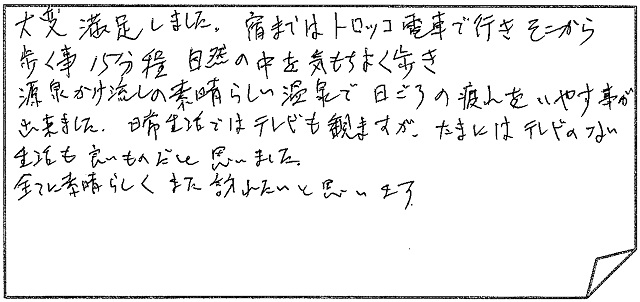 大変 満足しました。 宿まではトロッコ電車で行き そこから
歩く事 15分程 自然の中を気もちよく歩き
源泉かけ流しの素晴らしい温泉で 日ごろの疲れをいやす事が
出来ました。 日常生活ではテレビも観ますが、たまにはテレビのない
生活も良いものだと思いました。
全てに素晴らしく また訪れたいと思います